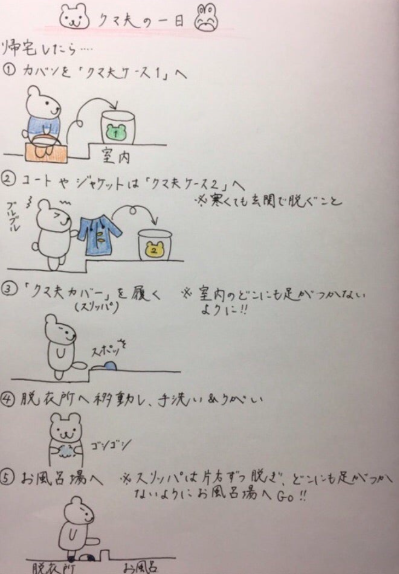 クマ夫の一日
帰宅したら‥‥
① カバンを「クマ夫ケース1」へ
1
室内
② コートやジャケットは「クマ夫ケース2」へ
※寒くても玄関で脱ぐこと
ブルブル
2
③ 「クマ夫カバー」を履く ※室内のどこにも足がつかない
(スリッパ) ように!!
スポッ
④ 脱衣所へ移動し、手洗い&うがい
ゴシゴシ
⑤ お風呂場へ ※スリッパは片方ずつ脱ぎ、どこにも足がつか
ないようにお風呂場へGO!!
脱衣所 お風呂